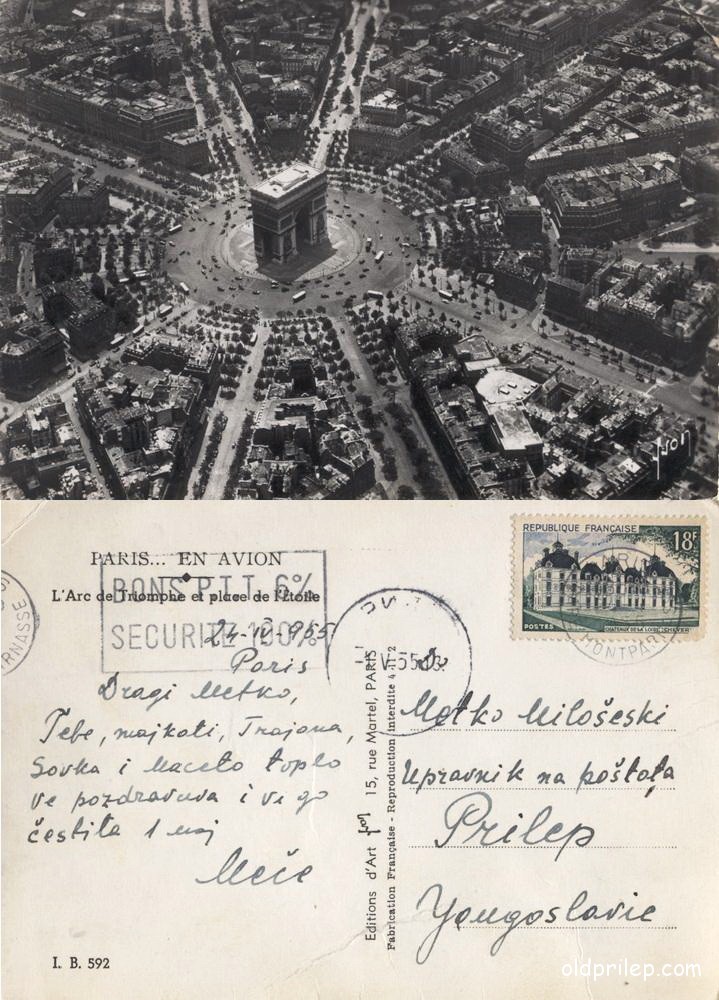 yvon
PARIS... EN AVION
L'Arc de Triomphe et place de l'Étoile
BONS P.T.T. 6%
SECURITE 100%
24-IV-955
Paris
Dragi Metko,
Tebe, majkati, Trajana,
Sovka i Maceto toplo
ve pozdravuva i vi go
čestita 1 maj
Meče
I. B. 592
Editions d'Art yvon 15, rue Martel, PARIS
Fabrication Française - Reproduction interdite
REPUBLIQUE FRANÇAISE
18F
POSTES
CHATEAUX DE LA LOIRE. CHEVERNY
MONTPARNASSE
Metko Milošeski
Upravnik na poštata
Prilep
Yougoslavie
oldprilep.com